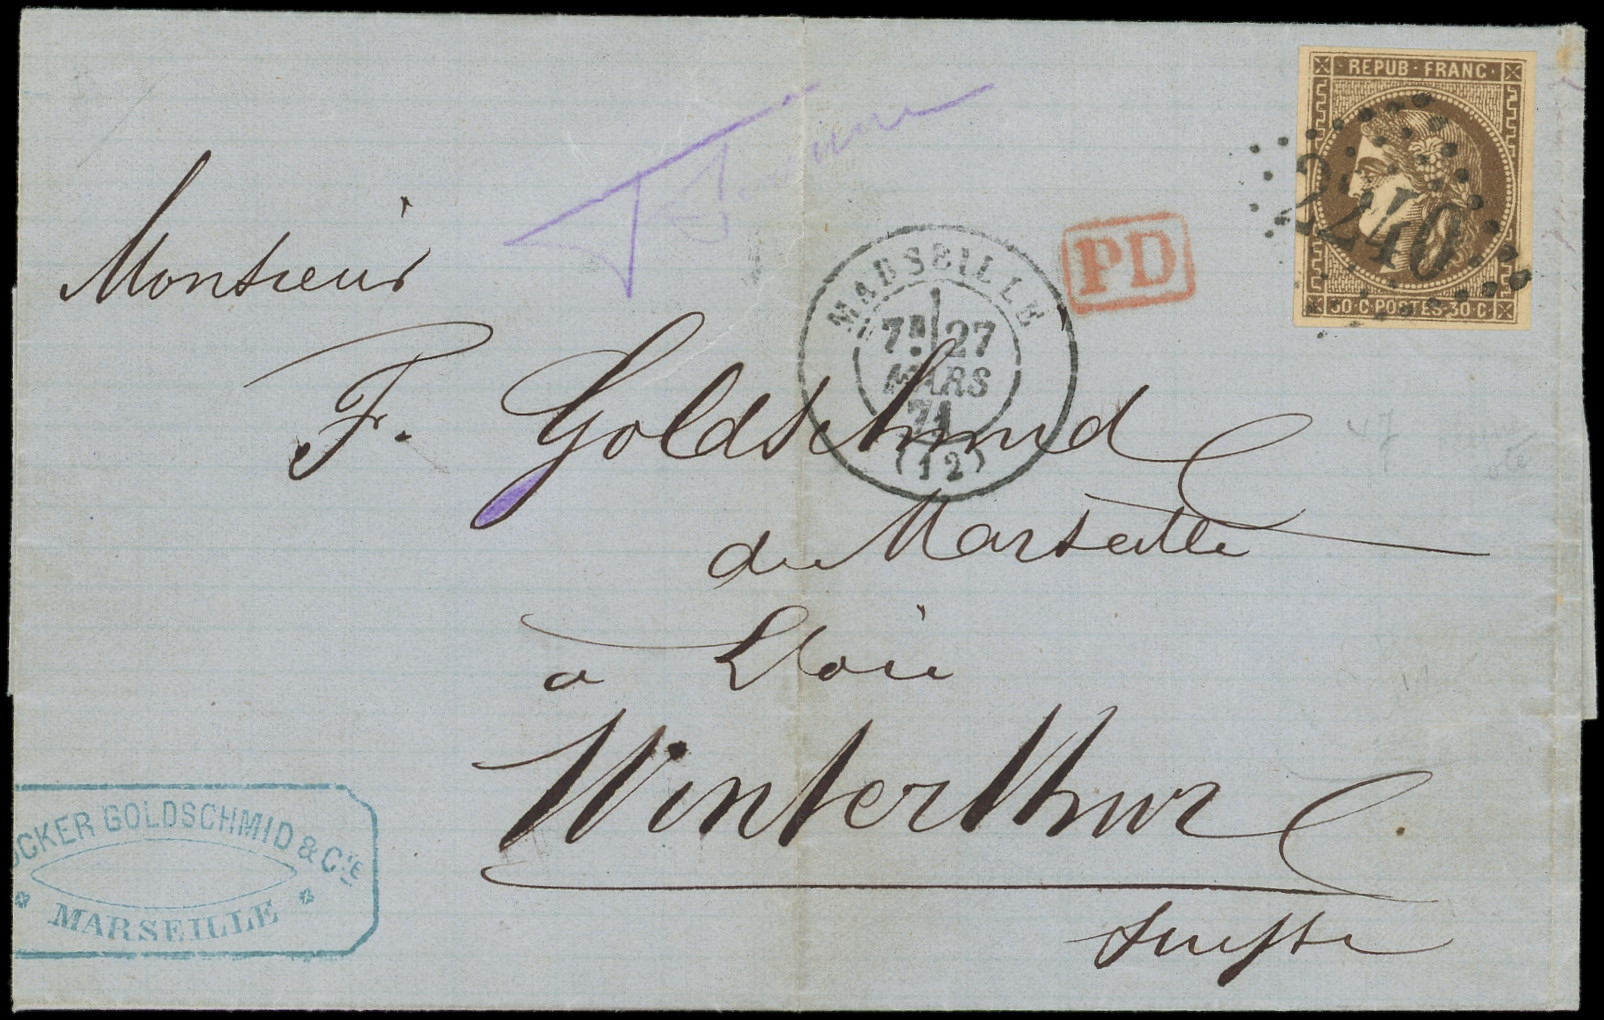 REPUB·FRANC·
2240
30·C·POSTES·30·C·
PD
MARSEILLE
7E 27
MARS
71
(12)
Monsieur
F. Goldschmid
de Marseille
à
Winterthur
Suisse
OCKER GOLDSCHMID & CIE
MARSEILLE